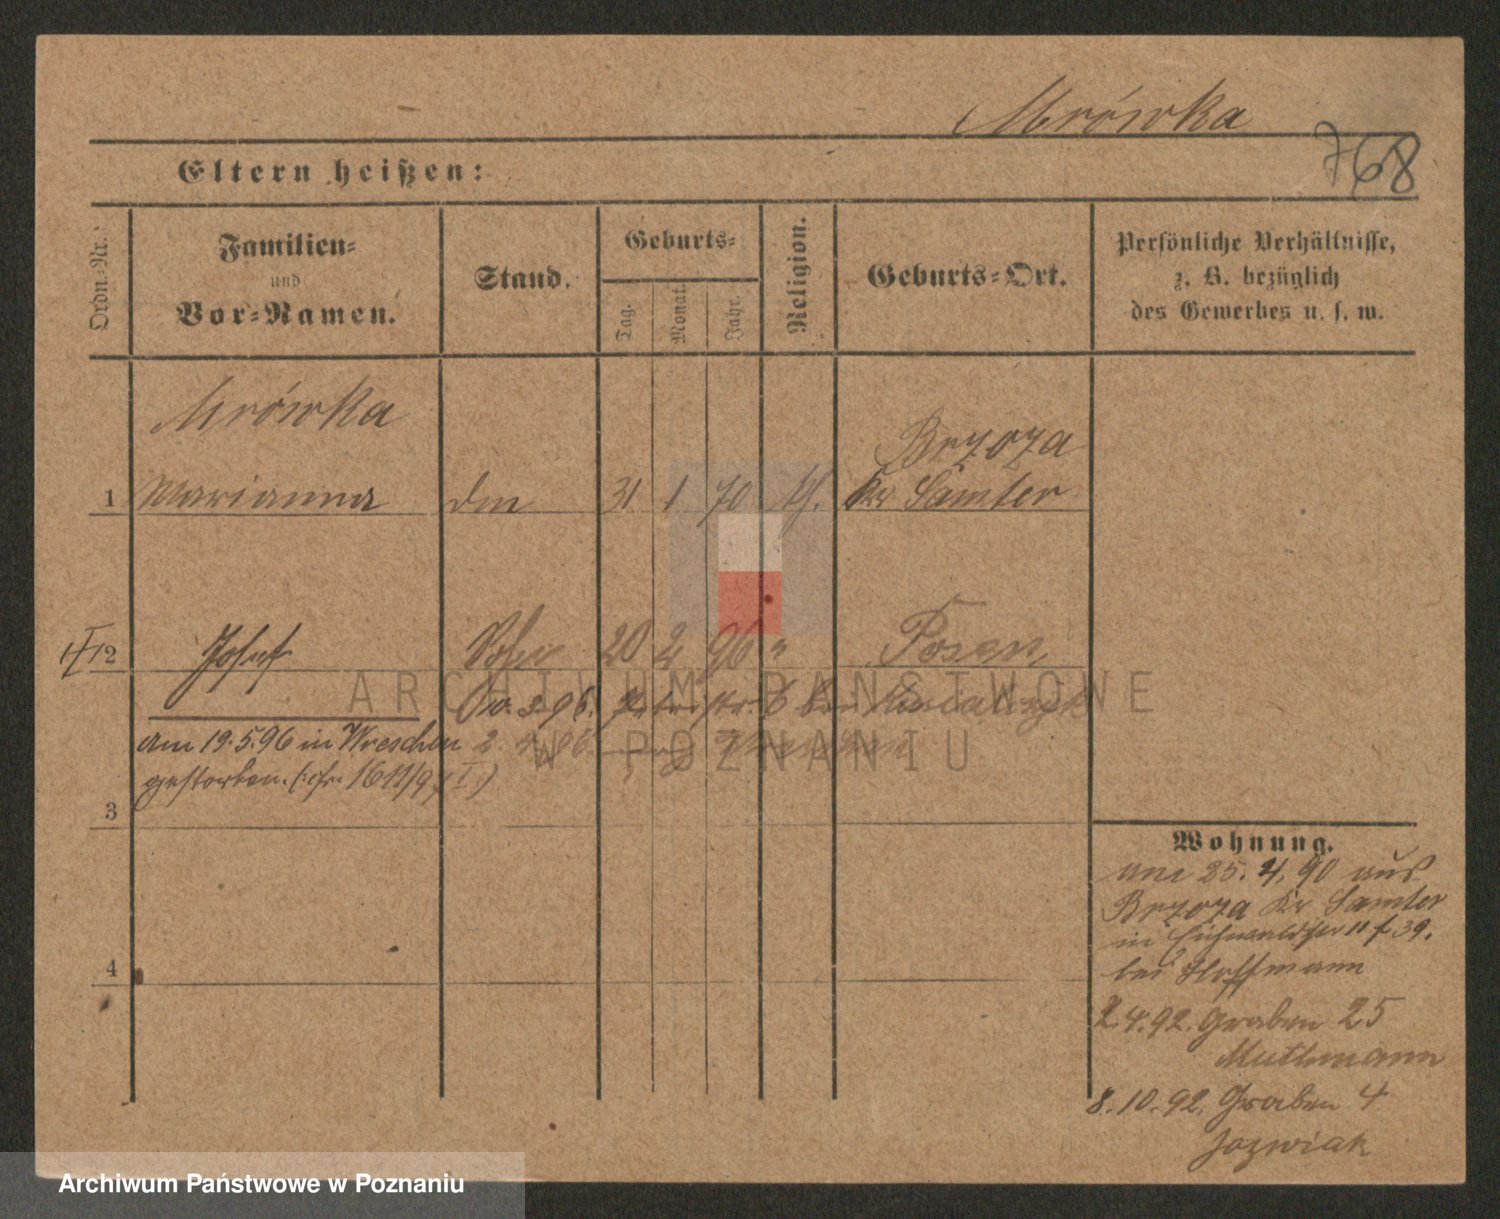 Mrówka
768
Eltern heißen:
Ordn.-Nr.
Familien-
und
Vor-Namen.
Stand.
Geburts-
Tag.
Monat.
Jahr.
Religion.
Geburts-Ort.
Persönliche Verhältnisse,
z. B. bezüglich
des Gewerbes u. s. w.
Mrówka
Brzoza
1 Marianna 31 1 70 Kr Samter
2 Josef 20 2 96 " Posen
3.96.
am 19.5.96 in Wreschen
gestorben.
3
4
Wohnung.
am 25.4.90 aus
Brzoza Kr Samter
in 39.
bei Hoffmann
2.4.92. Graben 25
Muthmann
8.10.92. Graben 4
Jozwiak
ARCHIWUM PAŃSTWOWE
W POZNANIU
Archiwum Państwowe w Poznaniu